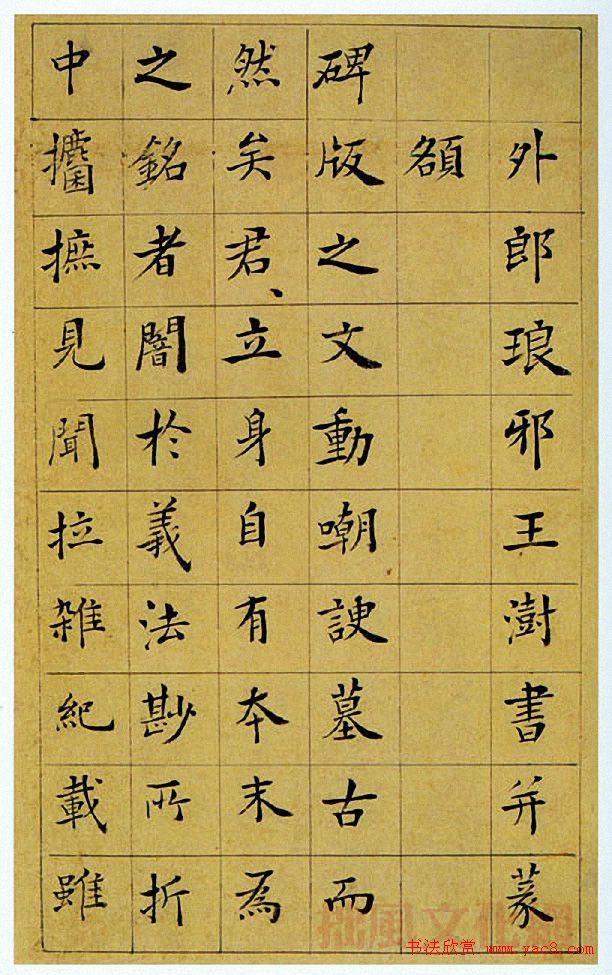 外郎琅邪王澍書并篆
頟
碑版之文動嘲諛墓古而
然矣君、立身自有本末為
之銘者闇於義法尠所折
中攟摭見聞拉雜紀載雖
拙風文化網
书法欣赏 www.yac8.com